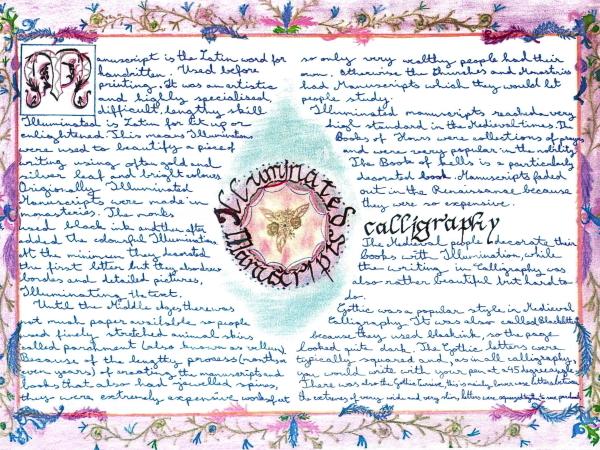 Manuscript is the Latin word for
handritten. Used before
printing. It was an artistic
and highly specialised,
difficult they skill
Illuminated is Latin for lit up or
enlightened. This means Illuminations
were used to beautify a piece of
writing using often gold and
silver leaf and bright colours
Originally Illuminated
Manuscripts were made in
monasteries. The monks
used black ink and then often
added the colourful Illumination
At the minimum they decorated
the first letter but they also drew
borders and detailed pictures,
Illuminating the text.
Until the Middle Ages there was
not much paper available so people
used finely stretched animal skins
called parchment (also known as vellum)
Because of the lengthy process (months
even years) of creating the manuscripts and
books that also had jewelled spines,
they were extremely expensive works of art
Illuminated
Manuscripts
so only very wealthy people had their
own. Otherwise the Churches and Monasteries
had Manuscripts which they would let
people study.
Illuminated manuscripts reached a very
high standard in the Medieval times. The
Books of Hours were collections of prayers
and were very popular in the nobility
The Book of Kells is a particularly
decorated book. Manuscripts faded
out in the Renaissance because
they were so expensive.
calligraphy
The Medieval people decorate their
books with Illumination, while
the writing in Calligraphy was
also rather beautiful but hard to
do.
Gothic was a popular style in Medieval
Calligraphy. It was also called Blackletter
because they used black ink, so the page
looked quite dark. The Gothic letters were
typically squared and, as in all calligraphy,
you would write with your pen at 45 degree angle
There was also the Gothic Cursive, this is mainly lower case letters between
the extremes of very wide and very slim letters were